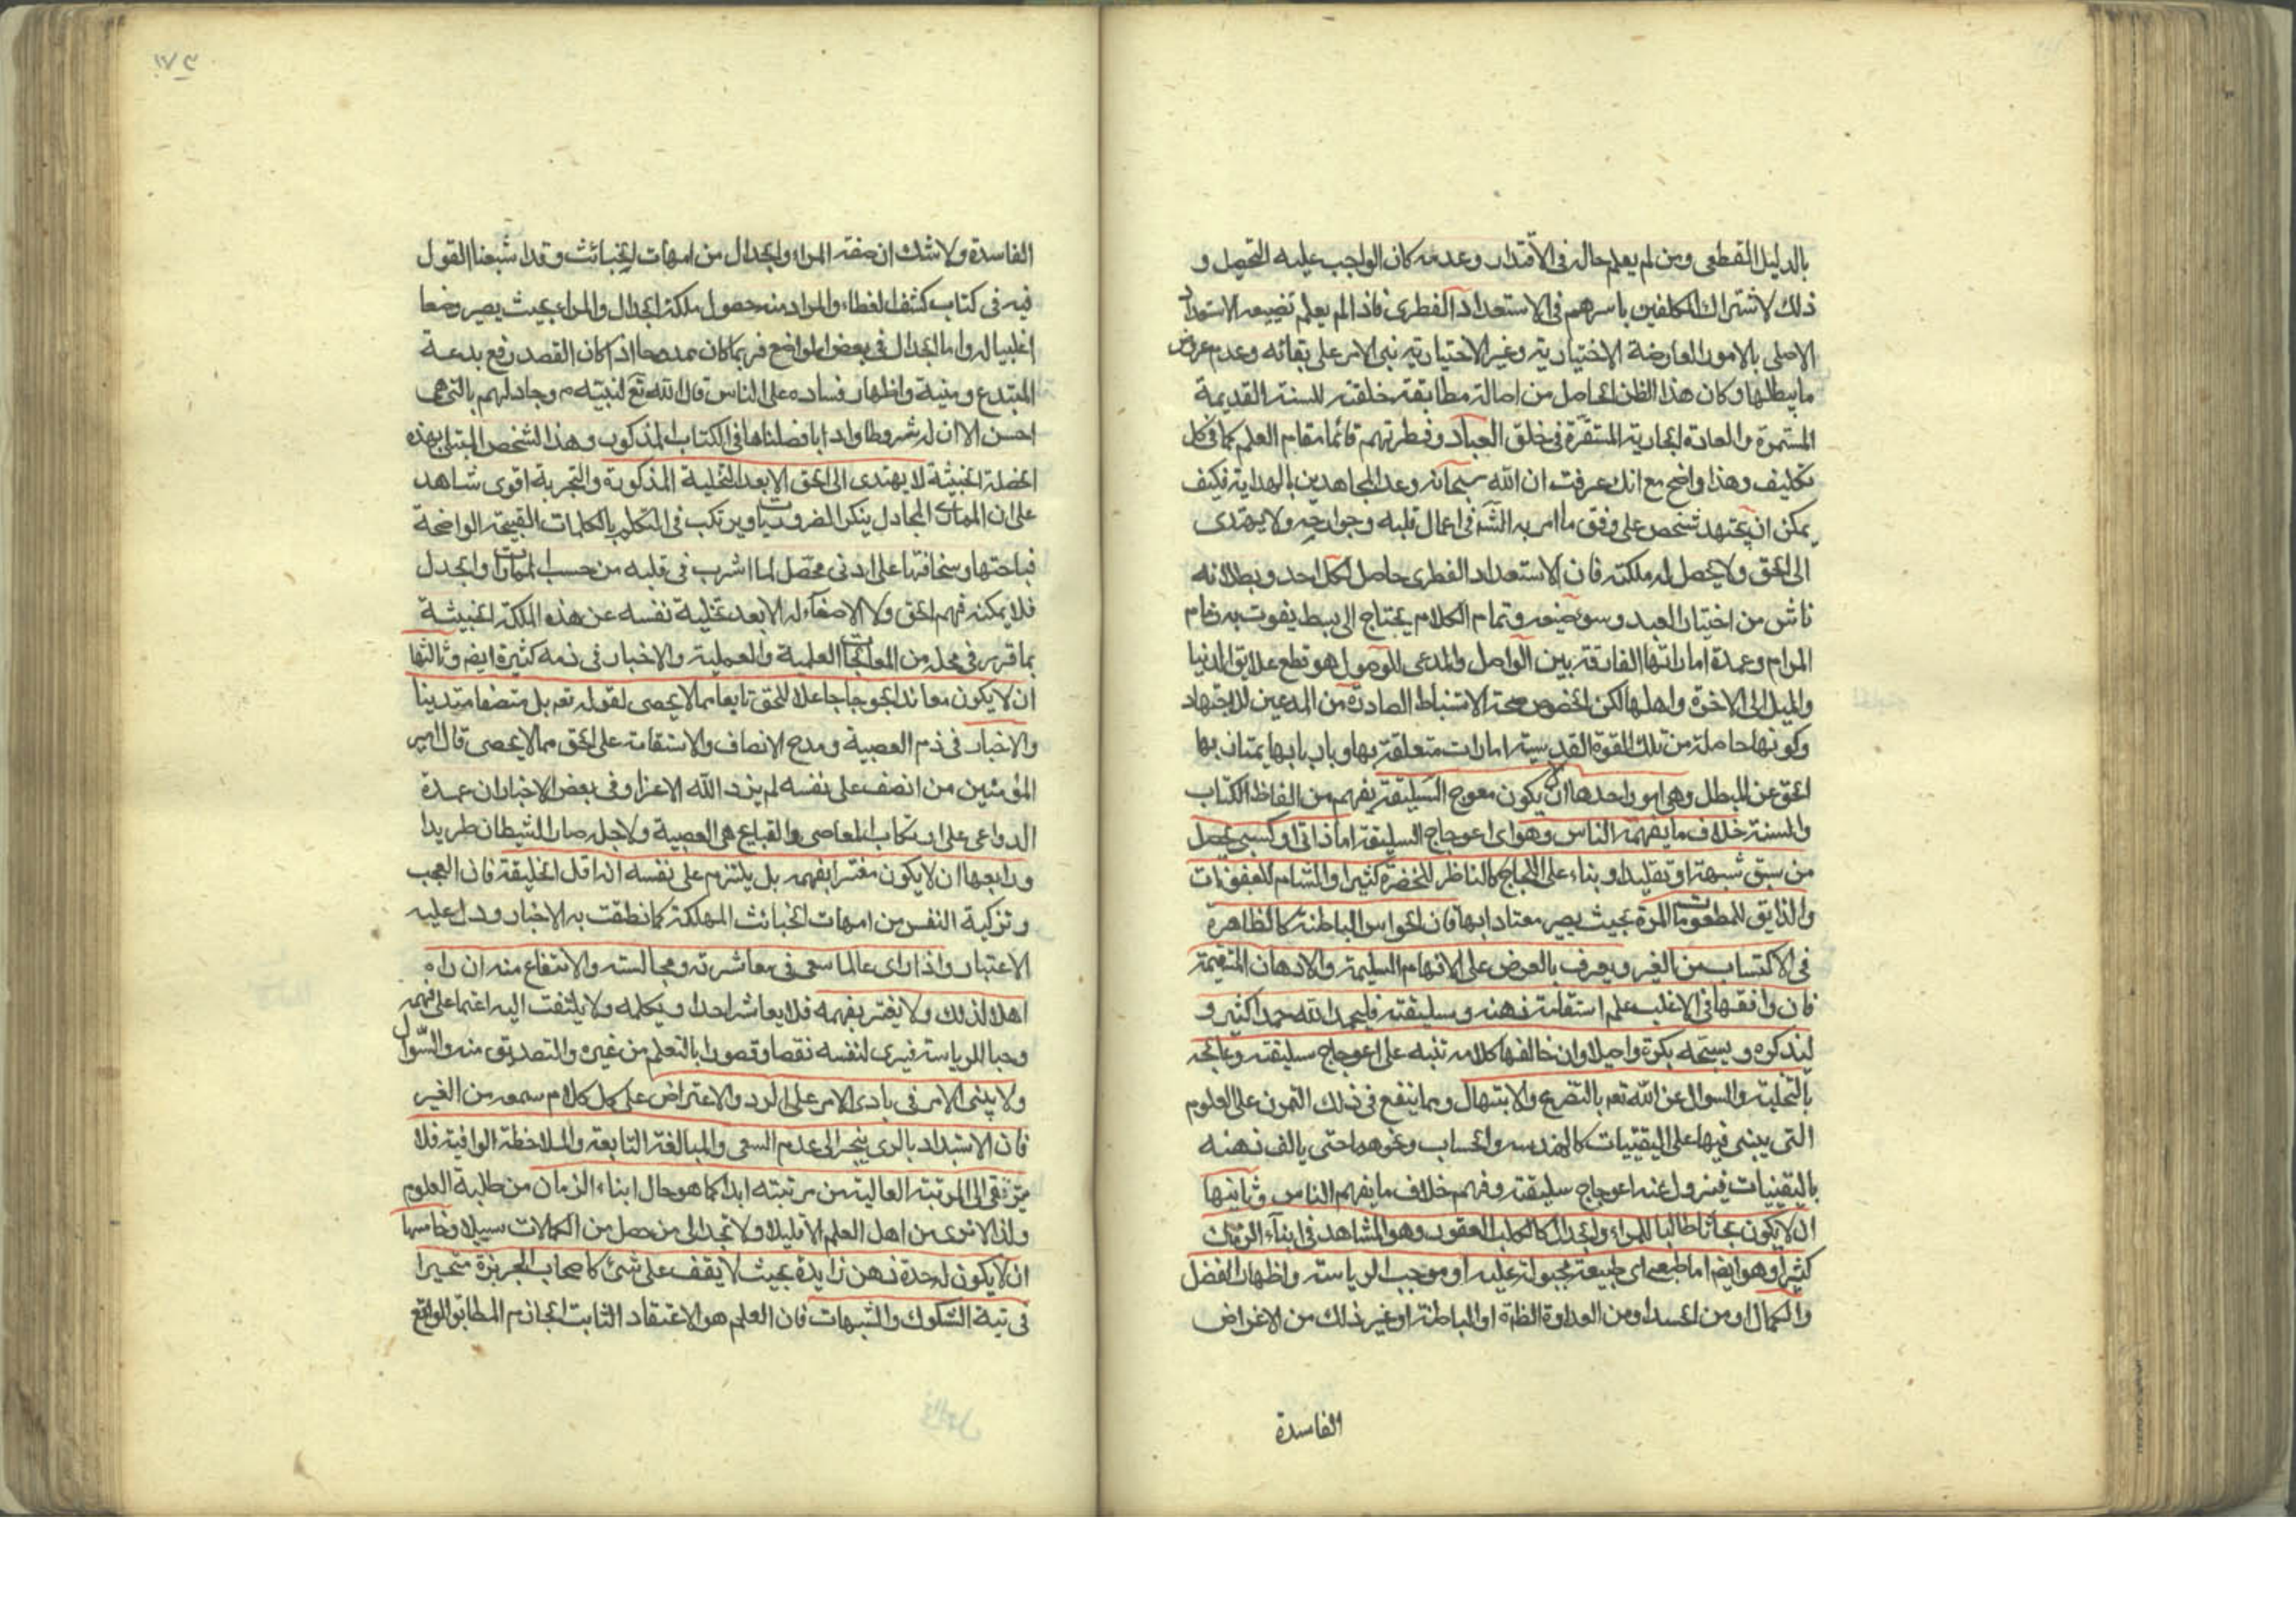 بالدليل القطعى ومن لم يعلم حاله فى الاقتدار وعدمه كان الواجب عليه التحصيل و
ذلك لاشتراك المكلفين باسرهم فى الاستعداد الفطرى فاذا لم يعلم تضييعه الاستعداد
الاصلى بالامور العارضة الاختيارية وغير الاختيارية بنى الامر على بقائه وعدم عروض
ما يبطلها وكان هذا الظن الحاصل من اصالة مطابقة خلقته للسنة القديمة
المستمرة والعادة الجارية المستقرة فى خلق العباد وفطرتهم قائما مقام العلم كما فى كل
تكليف وهذا واضح مع انك عرفت ان الله سبحانه وعد المجاهدين بالهداية فكيف
يمكن ان يجتهد شخص على وفق ما امر به الله فى اعمال قلبه وجوارحه ولا يهتدى
الى الحق ولا يحصل له ملكته فان الاستعداد الفطرى حاصل لكل احد وبطلانه
ناش من اختيار العبد وسوء صنيعه وتمام الكلام يحتاج الى بسط يفوت به زمام
المرام وعمدة اماراتها الفارقة بين الواصل والمدعى للوصول هو قطع علايق الدنيا
والميل الى الاخرة واهلها لكن لخصوص صحة الاستنباط الصادرة من المدعين للاجتهاد
وكونها حاصلة من تلك القوة القدسية امارات متعلقة بها وباربابها يمتاز بها
المحق عن المبطل وهى امور احدها ان لا يكون معوج السليقة يفهم من الفاظ الكتاب
والسنة خلاف ما يفهمه الناس وهو اى اعوجاج السليقة اما ذاتى او كسبى يحصل
من سبق شبهة او تقليد او بناء على اللجاج كالناظر للخضرة كثيرا والشام للعفونات
والذايق للمطعومات المرة بحيث يصير معتادا بها فان الحواس الباطنة كالظاهرة
فى الاكتساب من الغير ويعرف بالعرض على الافهام السليمة والاذهان المستقيمة
فان وافقها فى الاغلب علم استقامة ذهنه وسليقته فليحمد الله حمدا كثيرا و
ليذكره ويسبحه بكرة واصيلا وان خالفها كلامه تنبه على اعوجاج سليقته وعالجه
بالتخلية والسوال عن الله تعه بالتضرع والابتهال ومما ينفع فى ذلك التمرن على العلوم
التى يبتنى فيها على اليقينيات كالهندسه والحساب ونحوهما حتى يالف ذهنه
باليقينيات فيزول عنه اعوجاج سليقته وفهم خلاف ما يفهم الناس وثانيها
ان لا يكون بحاثا طالبا للمراء والجدال كالكلب العقور وهو المشاهد فى ابناء الزمان
كثيرا وهو ايضا اما طبعى اى طبيعة مجبولة عليه او موجب الرياسة واظهار الفضل
والكمال او من الحسد او من العداوة الظاهرة او الباطنة او غير ذلك من الاغراض
الفاسدة
١٧٣
الفاسدة ولا شك ان صفة المراء والجدال من امهات الخبائث وقد اشبعنا القول
فيه فى كتاب كشف الغطاء والمراد منه حصول ملكة الجدال والمراء بحيث يصير وضعا
اغلبيا له واما الجدال فى بعض المواضع فربما كان ممدوحا اذا كان القصد رفع بدعة
المبتدع واظهار فساده على الناس قال الله تع لنبيه م وجادلهم بالتى هى
احسن الا ان له شروطا وادابا فصلناها فى الكتاب المذكور وهذا الشخص المبتلى بهذه
الخصلة الخبيثة لا يهتدى الى الحق الا بعد التخلية المذكورة والتجربة اقوى شاهد
على ان المجادل ينكر الضروريات ويرتكب فى التكلم بالكلمات القبيحة الواضحة
قباحتها وسخافتها على ادنى محصل لما اشرب فى قلبه من حسب الممارات والجدل
فلا يمكنه فهم الحق ولا الاصغاء له الا بعد تخلية نفسه عن هذه الملكة الخبيثة
بما قرر فى محله من المعالجات العلمية والعملية والاخبار فى ذمه كثيرة ايضا وثالثها
ان لا يكون معاندا لجوجا جاعلا للحق تابعا لقوله تعه بل منصفا متدينا
والاخبار فى ذم العصبية ومدح الانصاف والاستقامة على الحق مما لا يحصى قال امير
المؤمنين من انصف على نفسه لم يزد الله الا عزا وفى بعض الاخبار ان عمدة
الدواعى على ارتكاب المعاصى والقبايح هى العصبية ولاجله صار الشيطان طريدا
ورابعها ان لا يكون مغترا بفهمه بل يلتزم على نفسه انه اقل الخليقة فان العجب
وتزكية النفس من امهات الخبائث المهلكة كما نطقت به الاخبار ودل عليه
الاعتبار واذا راى عالما سعى فى معاشرته ومجالسته والانتفاع منه ان راه
اهلا لذلك ولا يغتر بفهمه فلا يعاشر احدا ويكلمه ولا يلتفت اليه اعتمادا على فهمه
وحبا للرياسة فيرى لنفسه نقصا وقصورا بالتعلم من غيره والتصديق منه والسؤال
ولا يبنى الامر فى بادى الامر على الرد والاعتراض على كل كلام سمعه من الغير
فان الاستبداد بالرى ينجر الى عدم السعى والمبالغة التابعة والملاحظة الوافية فلا
يترقى الى المرتبة العالية من مرتبته ابدا كما هو حال ابناء الزمان من طلبة العلوم
ولذا لا نرى من اهل العلم الا قليلا ولا تجد الى من حصل من الكمالات سبيلا وخامسها
ان لا يكون له حدة ذهن زايدة بحيث لا يقف على شئ كاصحاب الجربزة متحيرا
فى تية الشكوك والشبهات فان العلم هو الاعتقاد الثابت الجازم المطابق للواقع